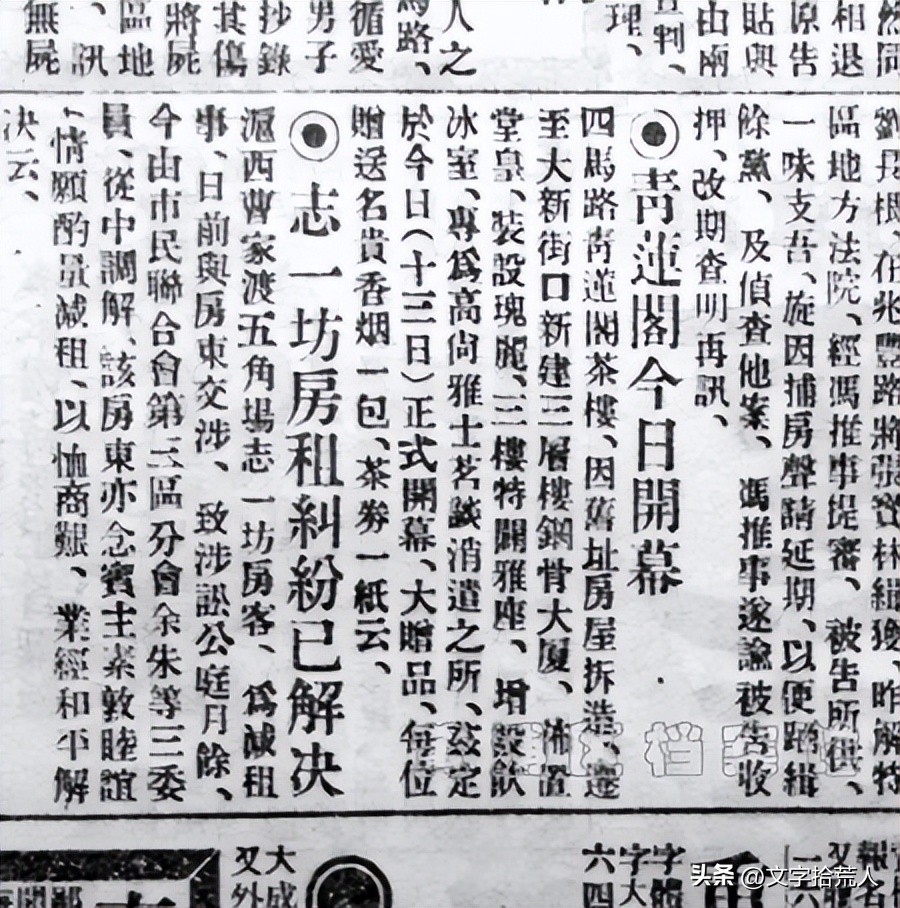 然同
相退
原告
貼與
由兩
判、
理、
人之
馬路、
循愛
男子
抄錄
其傷
將屍
區地
、訊
無屍
根、在兆豐路將張寶林緝獲、昨解特
區地方法院、經馮推事提審、被告所供、
一味支吾、旋因捕房聲請延期、以便緝
餘黨、及偵查他案、馮推事遂諭被告收
押、改期查明再訊、
◉靑蓮閣今日開幕
四馬路靑蓮閣茶樓、因舊址房屋拆造、遷
至大新街口新建三層樓鋼骨大厦、佈置
堂皇、裝設瑰麗、三樓特闢雅座、增設飲
冰室、專爲高尙雅士茗談消遣之所、茲定
於今日(十三日)正式開幕、大贈品、每位
贈送名貴香烟一包、茶劵一紙云、
◉志一坊房租糾紛已解决
滬西曹家渡五角場志一坊房客、爲減租
事、日前與房東交涉、致涉訟公庭月餘、
今由市民聯合會第三區分會余朱等三委
員、從中調解、該房東亦念賓主素敦睦誼
、情願酌量減租、以恤商艱、業經和平解
决云、
大成
又外
字體
字大
六四
头条 @文字拾荒人